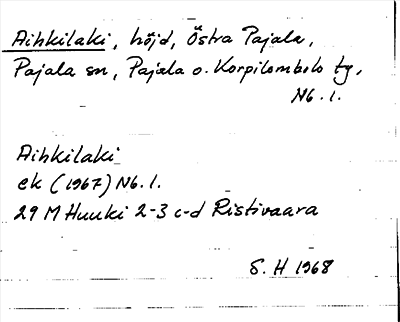 Aihkilaki, höjd, Östra Pajala,
Pajala sn, Pajala o. Korpilombolo tg,
Nb. l.
Aihkilaki
ek (1967) Nb. l.
29 M Huuki 2-3 c-d Ristivaara
S. H 1968